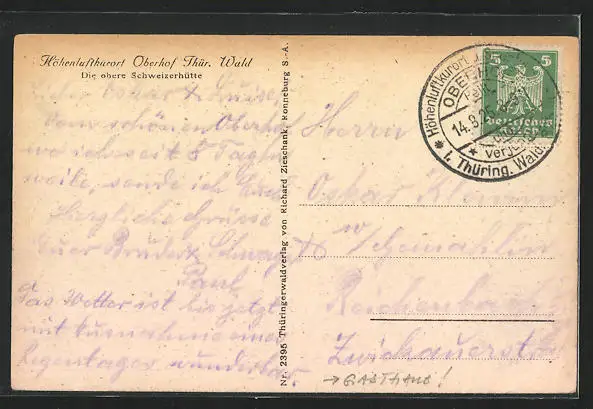 Höhenluftkurort Oberhof Thür. Wald
Die obere Schweizerhütte
Lieber Oskar & Luise,
Vom schönen Oberhof
wo ich seit 8 Tagen
weile, sende ich Euch
Herzliche Grüsse
Euer Bruder & Schwager
Paul
Das Wetter ist bis jetzt
mit Ausnahme eines
Regentages wunderbar.
Nr. 2395 Thüringerwaldverlag von Richard Zieschank, Ronneburg S.-A.
Höhenluftkurort
14.9.
verj
i. Thüring. Wald.
5 5
Deutsches
Herrn
Oskar
Gemahlin
Reichenbach
Zwickauerstr
→ GASTHAUS!